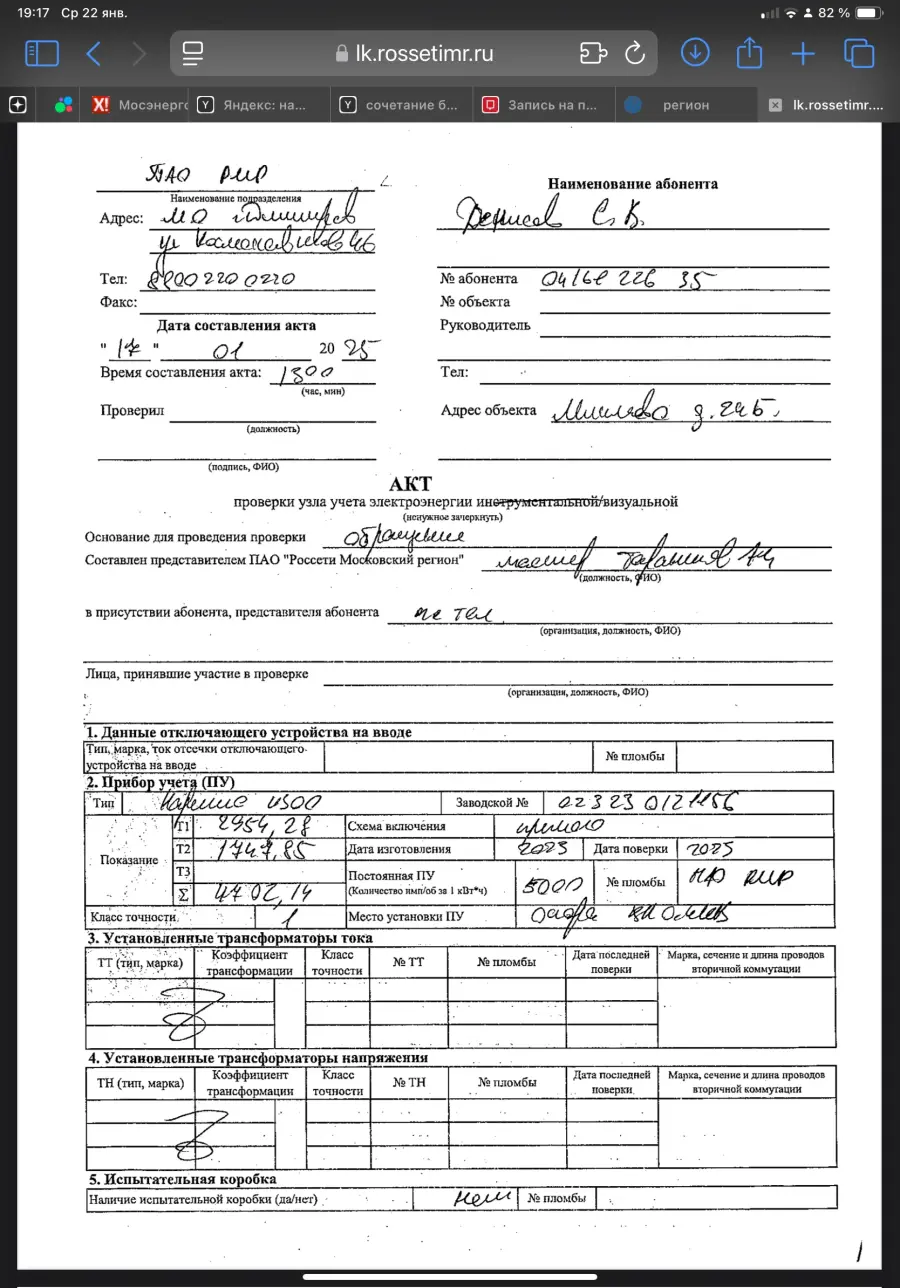 19:17 Ср 22 янв. 82 %
lk.rossetimr.ru
Мосэнерго Яндекс: на... сочетание б... Запись на п... регион lk.rossetimr....
ПАО РМР
Наименование подразделения
Наименование абонента
Адрес: МО
ул 46
Денисов С. В.
Тел: 8800 220 0220
№ абонента 04168 226 35
Факс:
№ объекта
Дата составления акта
Руководитель
" 17 " 01 20 25
Время составления акта: 1300
Тел:
(час, мин)
Проверил
Адрес объекта д. 24Б.
(должность)
(подпись, ФИО)
АКТ
проверки узла учета электроэнергии инструментальной/визуальной
(ненужное зачеркнуть)
Основание для проведения проверки обращение
Составлен представителем ПАО "Россети Московский регион" мастер
(должность, ФИО)
в присутствии абонента, представителя абонента по тел
(организация, должность, ФИО)
Лица, принявшие участие в проверке
(организация, должность, ФИО)
1. Данные отключающего устройства на вводе
Тип, марка, ток отсечки отключающего устройства на вводе № пломбы
2. Прибор учета (ПУ)
Тип Заводской № 02323 0121156
Показание
Т1 2954,28 Схема включения прямого
Т2 1747,85 Дата изготовления 2023 Дата поверки 2023
Т3
Постоянная ПУ (Количество имп/об за 1 кВт*ч) 5000 № пломбы РМР
Σ 4702,14
Класс точности 1 Место установки ПУ опора
3. Установленные трансформаторы тока
ТТ (тип, марка) Коэффициент трансформации Класс точности № ТТ № пломбы Дата последней поверки Марка, сечение и длина проводов вторичной коммутации
4. Установленные трансформаторы напряжения
ТН (тип, марка) Коэффициент трансформации Класс точности № ТН № пломбы Дата последней поверки Марка, сечение и длина проводов вторичной коммутации
5. Испытательная коробка
Наличие испытательной коробки (да/нет) нет № пломбы
1